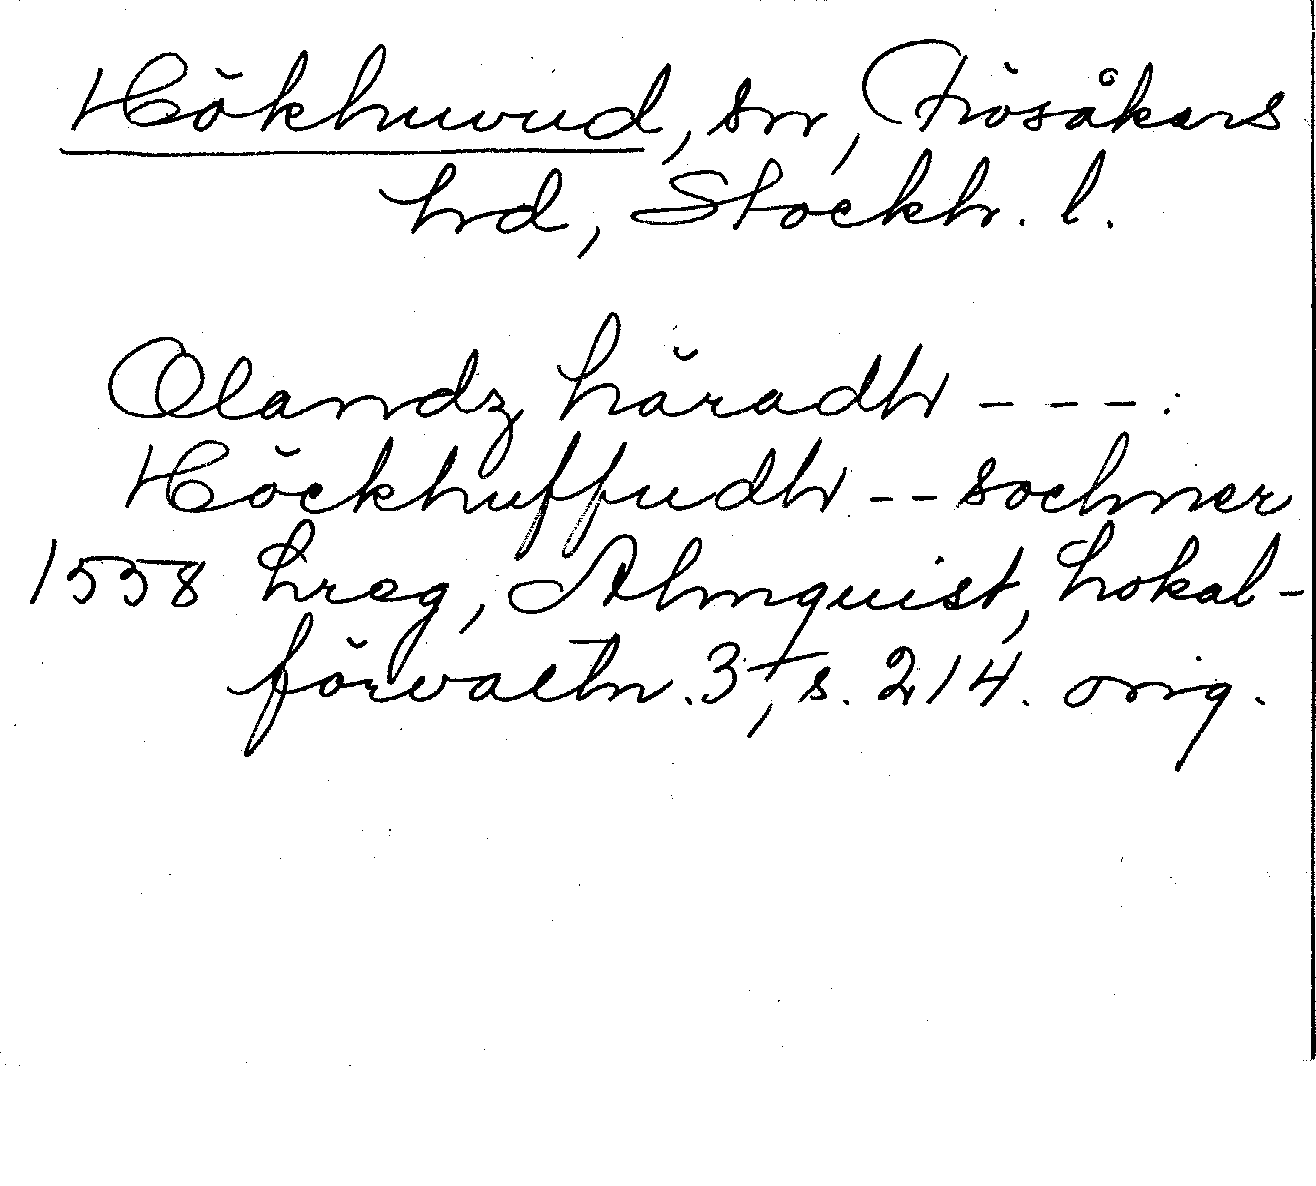 Hökhuvud, sn, Frösåkers
hd, Stockh. l.
Olandz häradh - - - :
Höckhuffudh - - sochner
1558 hreg, Almquist, Lokal-
förvaltn. 3⁺, s. 214. orig.